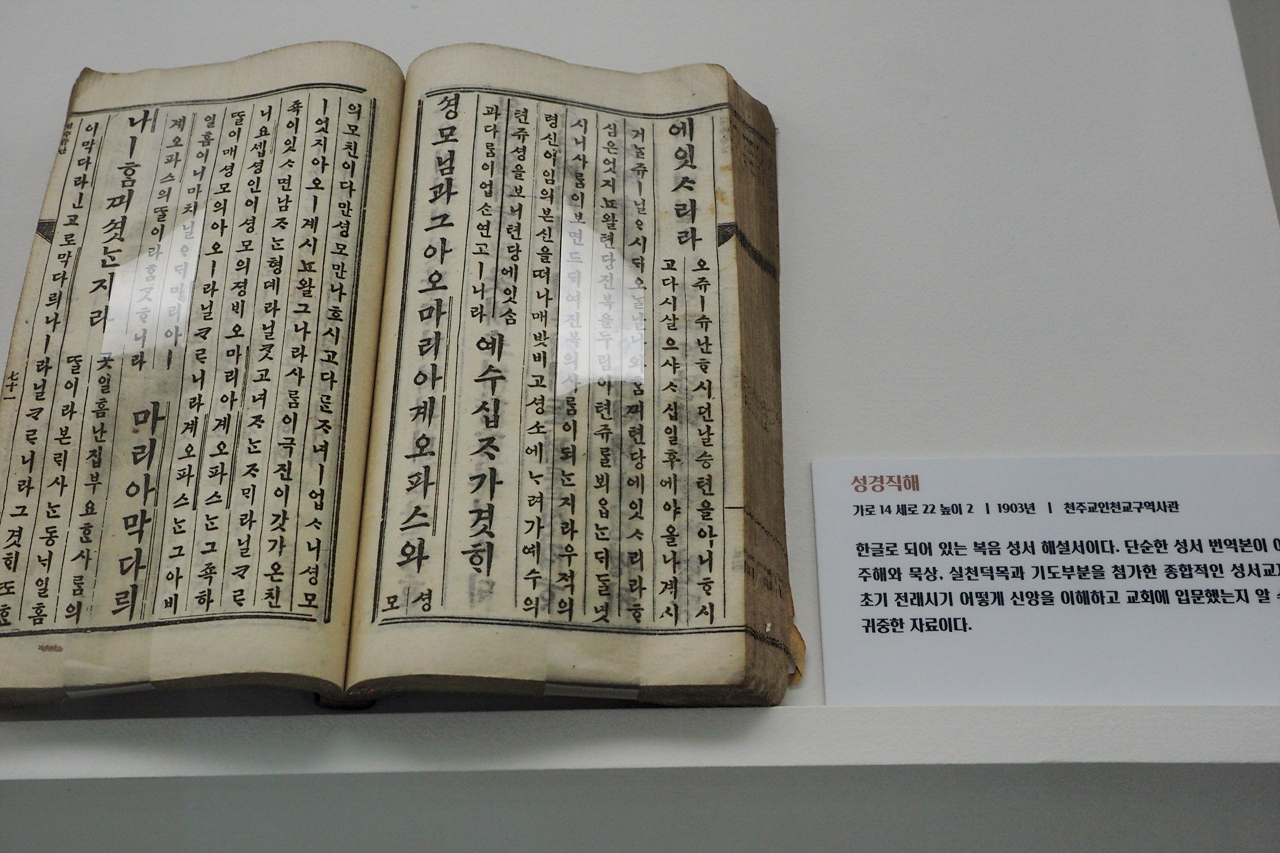 에잇ᄉᆞ리라
오쥬ㅣ슈난ᄒᆞ시던날승텬을아니ᄒᆞ시
고다시살으샤ᄉᆞ십일후에야올나계시
거ᄂᆞᆯ쥬ㅣ닐ᄋᆞ시ᄃᆡ오ᄂᆞᆯ날나와ᄒᆞᆷᄭᅴ텬당에잇ᄉᆞ리라ᄒᆞ
심은엇지뇨왈텬당진복을누림이텬쥬ᄅᆞᆯ뵈옵ᄂᆞᆫᄃᆡᄃᆞᆯ녓
시니사ᄅᆞᆷ이보면드ᄃᆡ여진복의사ᄅᆞᆷ이되ᄂᆞᆫ지라우젹의
령신이임의본신을ᄯᅥ나매밧비고셩소에ᄂᆞ려가예수의
텬쥬셩을보니텬당에잇ᄉᆞᆷ
과다ᄅᆞᆷ이업ᄉᆞᆫ연고ㅣ니라
예수십ᄌᆞ가겻ᄒᆡ
셩모님과그아오마리아계오파스와
셩
모
의모친이다만셩모만나흐시고다ᄅᆞᆫᄌᆞ녀ㅣ업ᄉᆞ니셩모
ㅣ엇지아오ㅣ계시뇨왈그나라사ᄅᆞᆷ이극진이갓가온친
족이잇ᄉᆞ면남ᄌᆞᄂᆞᆫ형뎨라닐ᄏᆞᆺ고녀ᄌᆞᄂᆞᆫᄌᆞ미라닐ᄏᆞᄅᆞ
니요셉셩인이셩모의졍비오마리아계오파스ᄂᆞᆫ그족하
ᄯᆞᆯ이매셩모의아오ㅣ라닐ᄏᆞᄅᆞ니라계오파스ᄂᆞᆫ그아비
일홈이니마치닐ᄋᆞᄃᆡ마리아ㅣ
계오파스의ᄯᆞᆯ이라ᄒᆞᆷᄀᆞᆺᄒᆞ니라
마리아막다릐
나ㅣᄒᆞᆷᄭᅴ셧ᄂᆞᆫ지라
곳일홈난집부요ᄒᆞᆫ사ᄅᆞᆷ의
ᄯᆞᆯ이라본릐사ᄂᆞᆫ동ᄂᆡ일홈
이막다라인고로막다릐나ㅣ라닐ᄏᆞᄅᆞ니라그것ᄒᆡᄯᅩᄒᆞᆫ
七十一
성경직해
가로 14 세로 22 높이 2 | 1903년 | 천주교인천교구역사관
한글로 되어 있는 복음 성서 해설서이다. 단순한 성서 번역본이
주해와 묵상, 실천덕목과 기도부분을 첨가한 종합적인 성서교
초기 전래시기 어떻게 신앙을 이해하고 교회에 입문했는지 알
귀중한 자료이다.